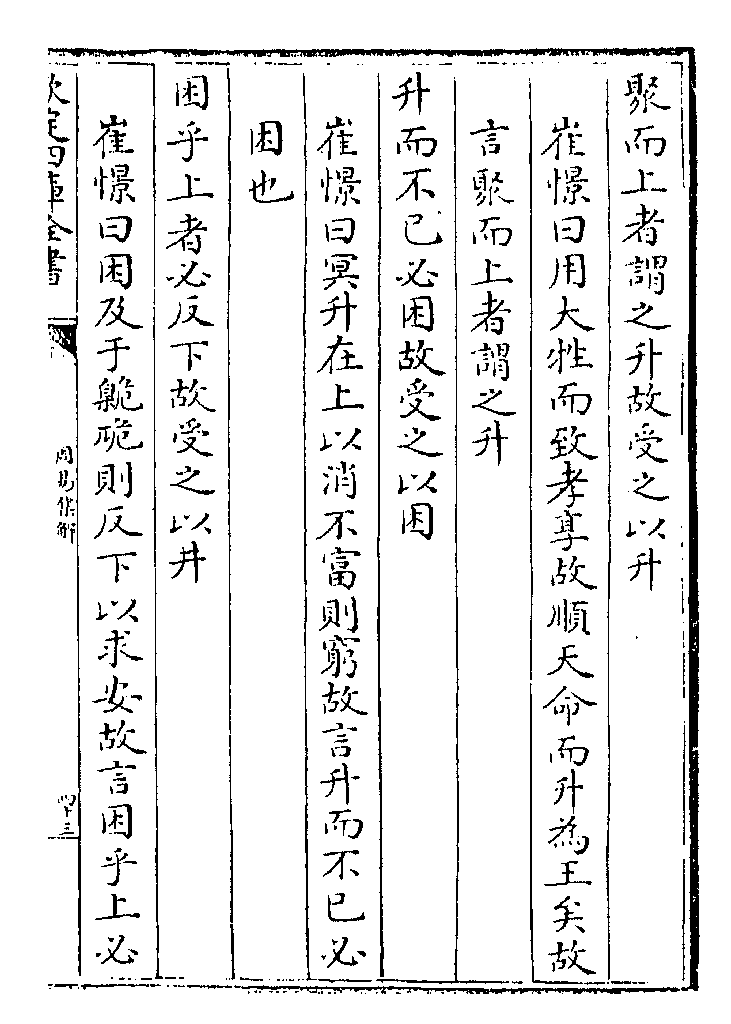 聚而上者謂之升故受之以升
崔憬曰用大牲而致孝享故順天命而升為王矣故
言聚而上者謂之升
升而不已必困故受之以困
崔憬曰冥升在上以消不富則窮故言升而不已必
困也
困乎上者必反下故受之以井
崔憬曰困及于臲卼則反下以求安故言困乎上必
欽定四庫全書
周易集解
四十三